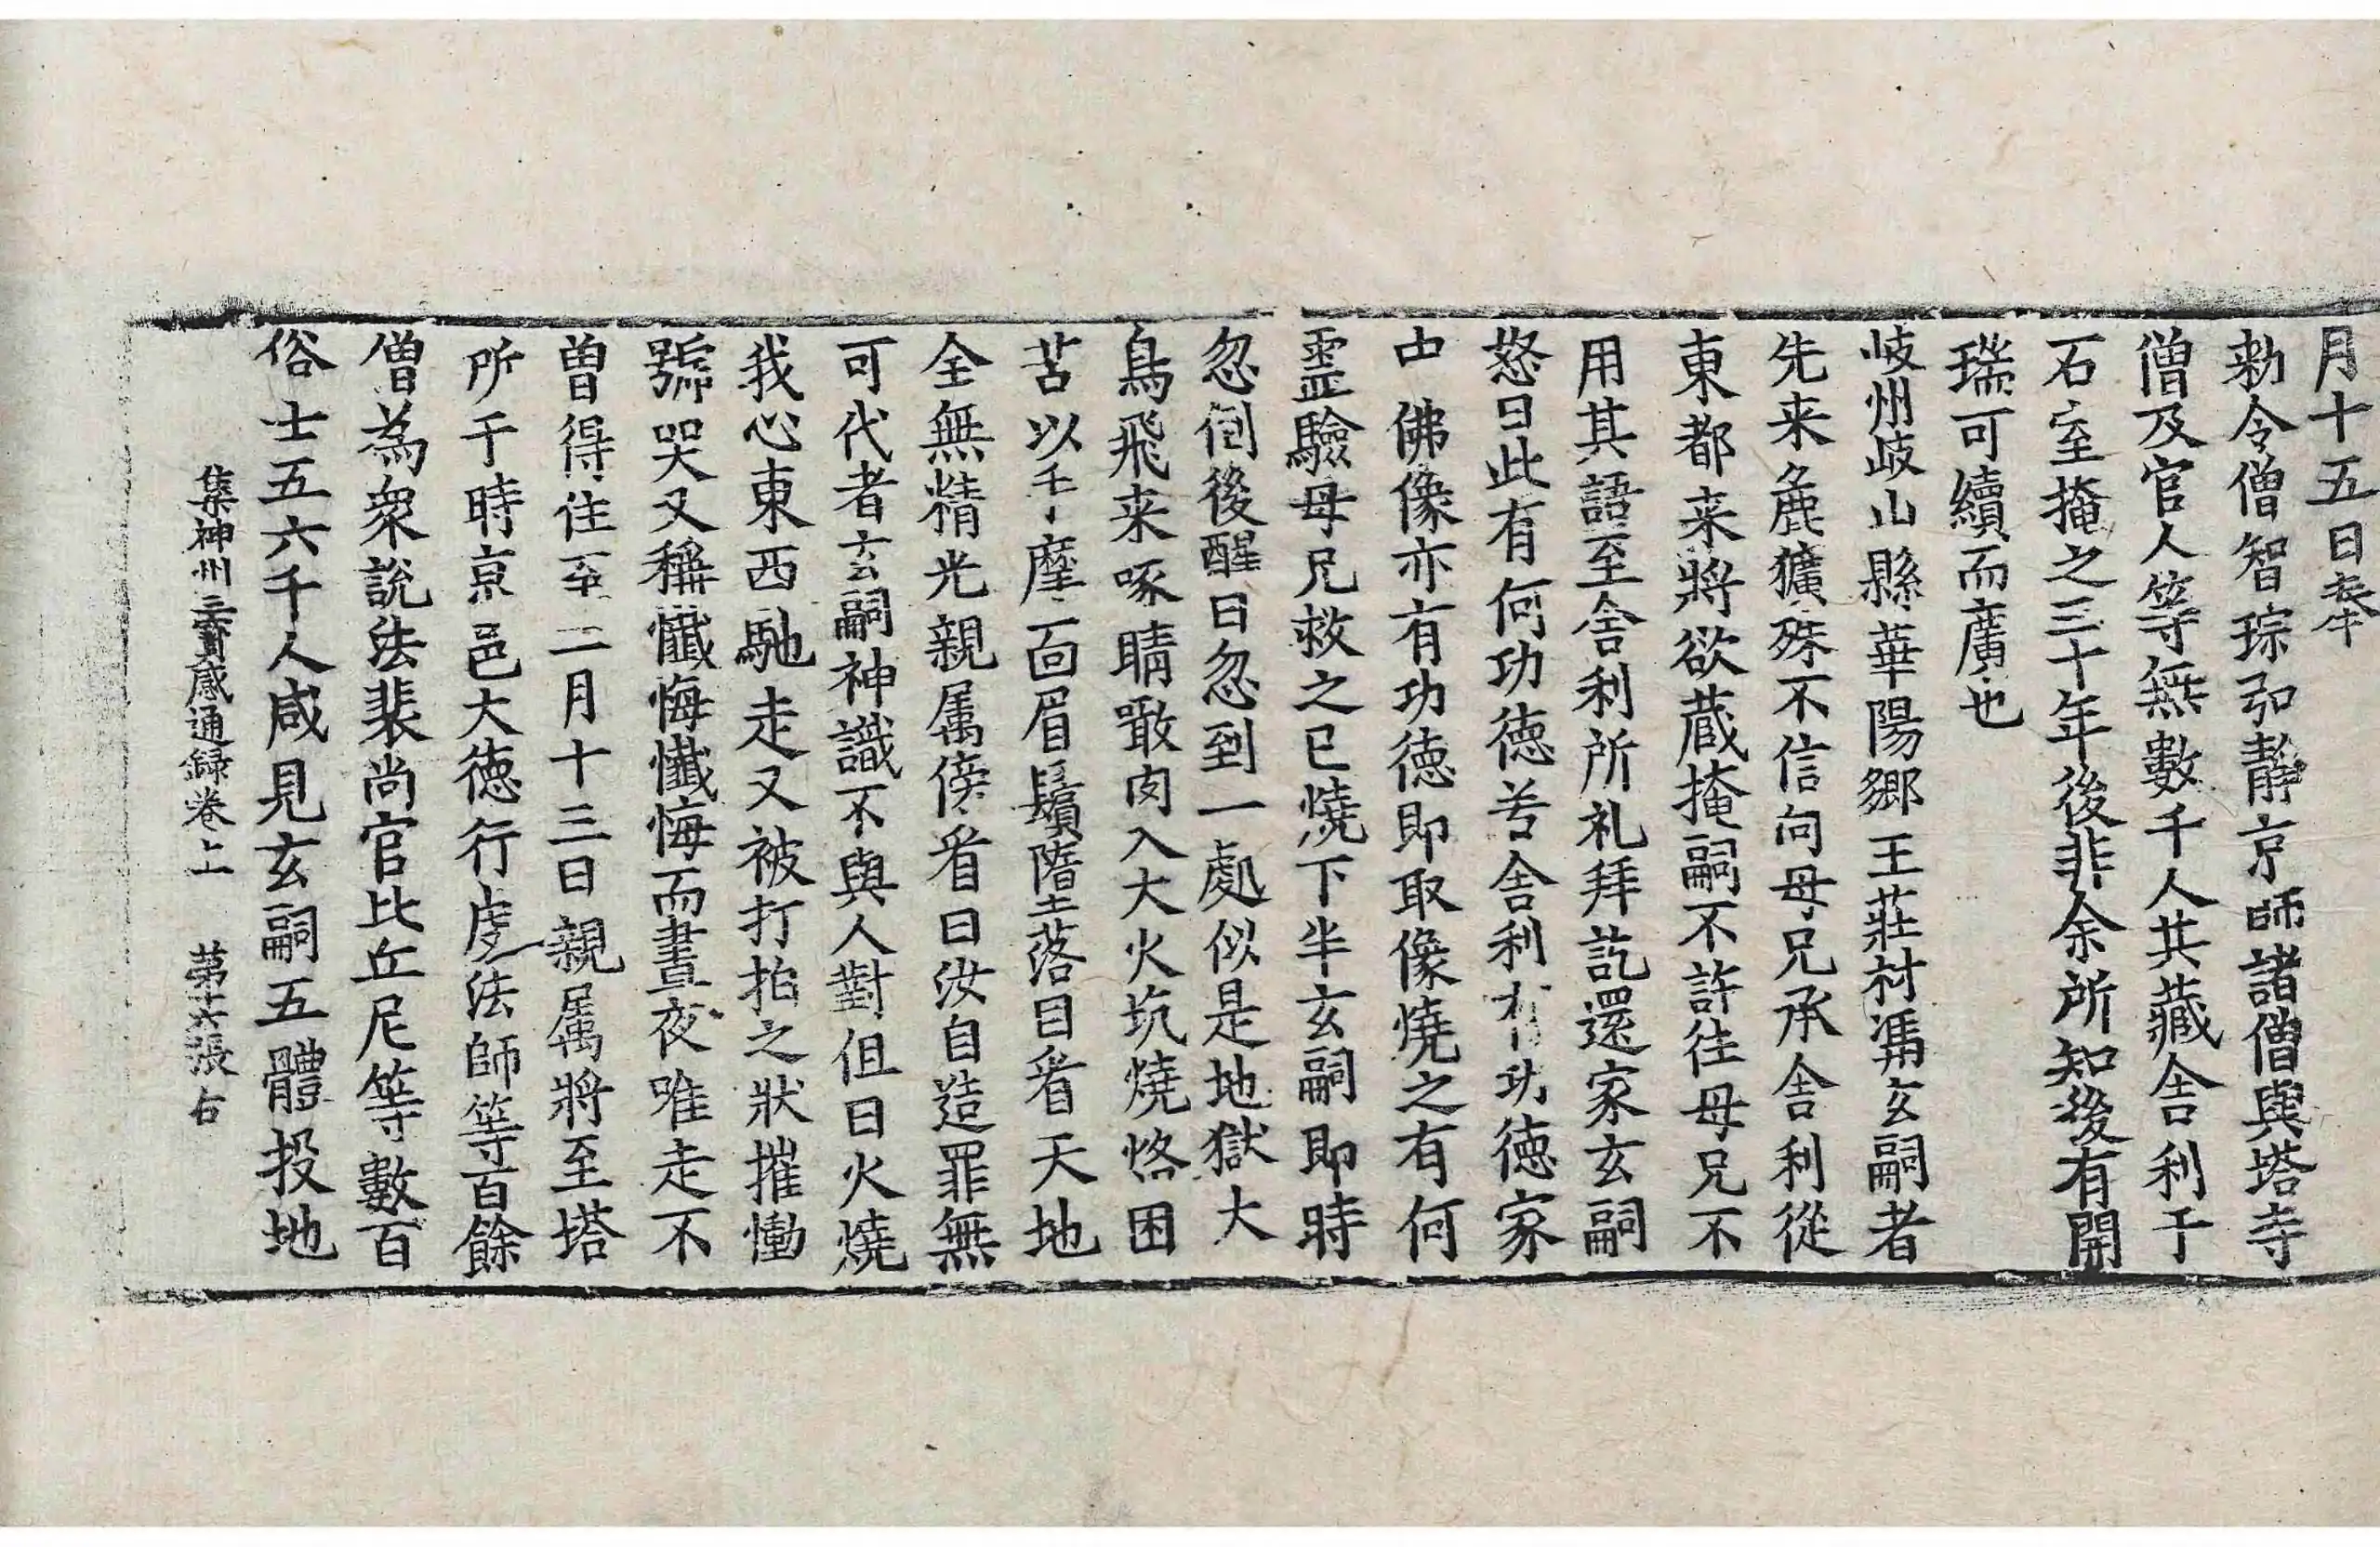 月十五日奉
勑令僧智琮弘静京師諸僧與塔寺
僧及官人等無數千人共藏舎利于
石室掩之三十年後非余所知後有開
瑞可續而廣也
岐州岐山縣華陽郷王莊村馮玄嗣者
先来麁獷殊不信向母兄承舎利從
東都来將欲蔵掩嗣不許往母兄不
用其語至舎利所礼拜訖還家玄嗣
怒曰此有何功徳若舎利有功徳家
中佛像亦有功徳即取像燒之有何
霊驗母兄救之已燒下半玄嗣即時
忽倒後醒曰忽到一處似是地獄大
鳥飛来啄睛噉肉入大火坑燒烙困
苦以手摩面眉鬚墮落目看天地
全無精光親属傍看曰汝自造罪無
可代者玄嗣神識不與人對但曰火燒
我心東西馳走又被打拍之狀摧慟
號哭又稱懺悔懺悔而晝夜唯走不
曽得住至二月十三日親属將至塔
所于時京邑大徳行虔法師等百餘
僧為衆說法裴尚官比丘尼等數百
俗士五六千人咸見玄嗣五體投地
集神州三寶感通録卷上　第十六張　右